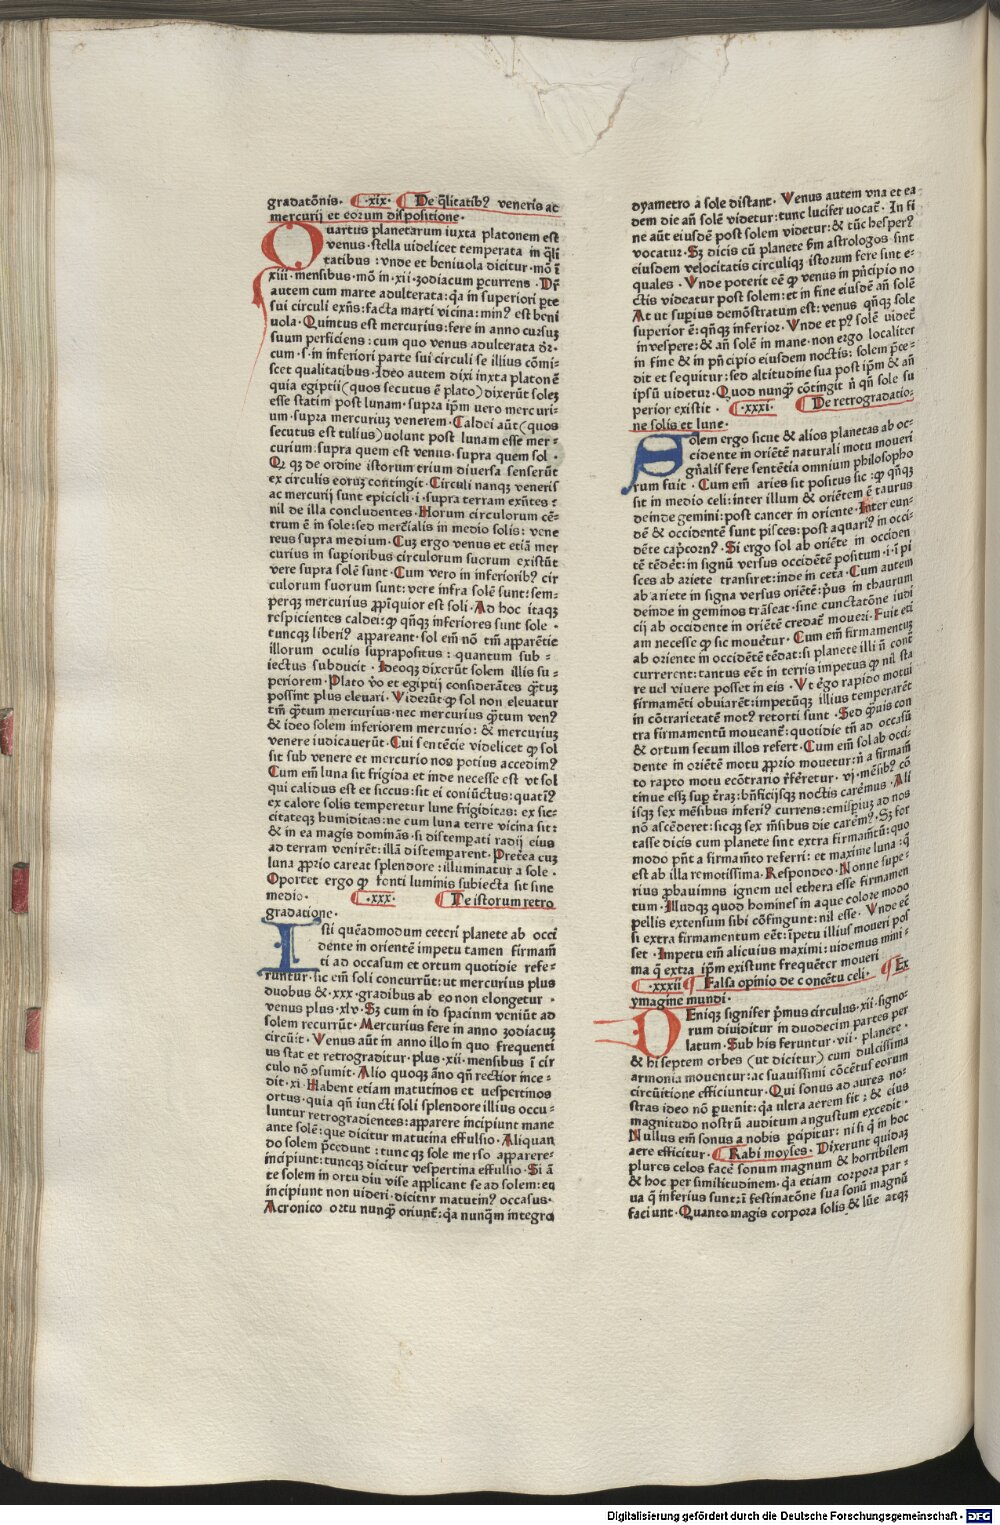 gradatōnis. ·xix· De q̄litatibꝰ veneris ac
mercurij et eorum dispositione.
Quartus planetarum iuxta platonem est
venus. stella uidelicet temperata in q̄li
tatibus: vnde et beniuola dicitur. mō ī
xiii. mensibus. mō in. xii. zodiacum ꝑcurrens. Dr̄
autem cum marte adulterata: q̄a in superiori ꝑte
sui circuli exn̄s: facta marti vicina: minꝰ est beni
uola. Quintus est mercurius: fere in anno cursuȝ
suum perficiens: cum quo venus adulterata dr̄.
cum. s. in inferiori parte sui circuli se illius cōmi=
scet qualitatibus. Ideo autem dixi iuxta platonē
quia egiptij (quos secutus ē plato) dixerūt soleȝ
esse statim post lunam. supra ip̄m uero mercuri=
um. supra mercuriuȝ venerem. Caldei aūt (quos
secutus est tulius) uolunt post lunam esse mer=
curium: supra quem est venus. supra quem sol.
Qꝛ qȝ de ordine istorum trium diuersa senserūt
ex circulis eoruȝ contingit. Circuli nanqȝ veneris
ac mercurij sunt epicicli. i. supra terram exn̄tes:
nil de illa concludentes. Horum circulorum cē=
trum ē in sole: sed merc̄ialis in medio solis: vene
reus supra medium. Cuȝ ergo venus et etiā mer
curius in suꝑioribus circulorum suorum existūt
vere supra solē sunt. Cum vero in inferioribꝰ cir
culorum suorum sunt: vere infra solē sunt: sem=
perqȝ mercurius ꝓpīquior est soli. Ad hoc itaqȝ
respicientes caldei: ꝙ qn̄qȝ inferiores sunt sole.
tuncqȝ liberiꝰ appareant. sol em̄ nō tm̄ apparētie
illorum oculis suprapositus: quantum sub=
iectus subducit. Ideoqȝ dixerūt solem illis su=
periorem. Plato v̄o et egiptij considerātes q̄tuȝ
possint plus eleuari. Viderūt ꝙ sol non eleuatur
tm̄ q̄tum mercurius. nec mercurius q̄tum venꝰ
& ideo solem inferiorem mercurio: & mercuriuȝ
venere iudicauerūt. Cui sentētie videlicet ꝙ sol
sit sub venere et mercurio nos potius accedimꝰ
Cum em̄ luna sit frigida et inde necesse est vt sol
qui calidus est et siccus: sit ei coniūctus: quatīꝰ
ex calore solis temperetur lune frigiditas: ex sic=
citateqȝ humiditas: ne cum luna terre vicina sit:
& in ea magis dominās. si distemꝑati radij eius
ad terram venirēt: illā distemꝑarent. Preterea cuȝ
luna ꝓprio careat splendore: illuminatur a sole.
Oportet ergo ꝙ fonti luminis subiecta sit sine
medio. ·xxx· De istorum retro
gradatione.
Isti quēadmodum ceteri planete ab occi
dente in orientē impetu tamen firmam̄
ti ad occasum et ortum quotidie refe=
runtur. sic em̄ soli concurrūt: ut mercurius plus
duobus &. xxx. gradibus ab eo non elongetur.
venus plus. xlv. Sȝ cum in id spacium veniūt ad
solem recurrūt. Mercurius fere in anno zodiacuȝ
circūit. Venus aūt in anno illo in quo frequenti
us stat et retrograditur. plus. xii. mensibus ī cir
culo nō ꝯsumit. Alio quoqȝ āno qn̄ rectior ince=
dit. xi. Habent etiam matutinos et uespertinos
ortus. quia qn̄ iuncti soli splendore illius occu=
luntur retrogradientes: apparere īncipiunt mane
ante solē: que dicitur matutina effulsio. Aliquan
do solem p̄cedunt: tuncqȝ sole merso apparere=
īncipiunt: tuncqȝ dicitur vespertina effulsio. Si ā
te solem in ortu diu vise applicant se ad solem: eū
incipiunt non uideri. dicitur matutinꝰ occasus.
Acronico ortu nunqȝ oriunt̄: q̄a nunq̄m integro
dyametro a sole distant. Venus autem vna et ea
dem die an̄ solē videtur: tunc lucifer uocat̄. In fi
ne aūt eiusdē post solem videtur: & tūc hesperꝰ
vocatur. Sȝ dicis cū planete s̄m astrologos sint
eiusdem velocitatis circuliqȝ istorum fere sint e=
quales. Vnde poterit eē ꝙ venus in pn̄cipio no
ctis videatur post solem: et in fine eiusdē an̄ solē
At ut suꝑius demōstratum est: venus qn̄qȝ sole
superior ē: qn̄qȝ inferior. Vnde et pꝰ solē videt̄
in vespere: & an̄ solē in mane. non ergo localiter
in fine & in pn̄cipio eiusdem noctis: solem p̄ce=
dit et sequitur: sed altitudine sua post ip̄m & an̄
ipsū uidetur. Quod nunqȝ cōtingit n̄ qn̄ sole su
perior existit. ·xxxi· De retrogradatio=
ne solis et lune.
Solem ergo sicut & alios planetas ab oc=
cidente in oriētē naturali motu moueri
gn̄alis fere sentētia omnium philosopho
rum fuit. Cum em̄ aries sit positus sic: ꝙ qn̄qȝ
sit in medio celi: inter illum & oriētem ē taurus
deinde gemini: post cancer in oriente. Inter eun=
dē & occidentē sunt pisces: post aquariꝰ in occi=
dēte cap̄cornꝰ. Si ergo sol ab oriēte in occiden
tē tēdet: in signū versus occidētē positum. i. ī pi
sces ab ariete transiret: inde in ceta. Cum autem
ab ariete in signa versus oriētē: p̄us in thaurum
deinde in geminos trāseat. sine cunctatōne iudi
cij ab occidente in oriētē credat̄ moueri. Fuit eti
am necesse ꝙ sic mouētur. Cum em̄ firmamentuȝ
ab oriente in occidētē tēdat: si planete illi n̄ cont̄
currerent: tantus eēt in terris impetus ꝙ nil sta
re uel viuere posset in eis. Vt ergo rapido motui
firmamēti obuiarēt: impetūqȝ illius temperarēt
in cōtrarietatē motꝰ retorti sunt. Sed q̄uis con
tra firmamentū moueant̄: quotidie tn̄ ad occasū
& ortum secum illos refert. Cum em̄ sol ab occi=
dente in oriētē motu ꝓprio mouetur: n̄ a firmam̄
to rapto motu ecōtrario r̄feretur. vj. mēsibꝰ cō
tinue esȝ suꝑ t̄raȝ: bn̄ficijsqȝ noctis carēmus. Ali
isqȝ sex mēsibus inferiꝰ currens: emisꝑiuȝ ad nos
nō ascēderet: sicqȝ sex mēsibus die carēmꝰ. Sȝ for
tasse dicis cum planete sint extra firmam̄tū: quo
modo pn̄t a firmam̄to referri: et maxime luna: q̄
est ab illa remotissima. Respondeo. Nonne supe=
rius ꝓbauimns ignem uel ethera esse firmamen
tum. Illudqȝ quod homines in aque colore modo
pellis extensum sibi cōfingunt: nil esse. Vnde eē
si extra firmamentum eēt: īpetu illius moueri pos
set. Impetu em̄ alicuius maximi: uidemus mini=
ma q̄ extra ip̄m existunt frequēter moueri
·xxxii· Falsa opinio de concētu celi. Ex
ymagine mundi.
DEniqȝ signifer p̄mus circulus. xii. signo=
rum diuiditur in duodecim partes per
latum. Sub his feruntur. vii. planete.
& hi septem orbes (ut dicitur) cum dulcissima
armonia mouentur: ac suauissimi cōcētus eorum
circūitione efficiuntur. Qui sonus ad aures no=
stras ideo nō ꝑuenit: q̄a ultra aerem fit: & eius
magnitudo nostrū auditum angustum excedit.
Nullus em̄ sonus a nobis ꝑcipitur: nisi q̄ in hoc
aere efficitur. Rabi moyses. Dixerunt quidaȝ
plures celos facē sonum magnum & horribilem
& hoc per similitudinem. q̄a etiam corpora par=
ua q̄ inferius sunt: ī festinatōne sua sonū magnū
faciunt. Quanto magis corpora solis & lūe atqȝ
Digitalisierung gefördert durch die Deutsche Forschungsgemeinschaft - DFG